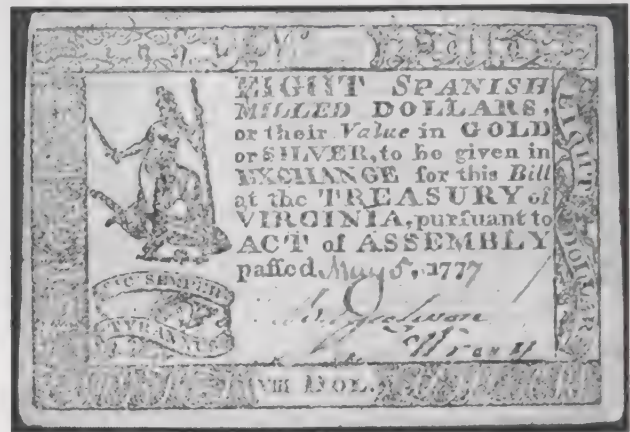 EIGHT SPANISH
MILLED DOLLARS,
or their Value in GOLD
or SILVER, to be given in
EXCHANGE for this Bill
at the TREASURY of
VIRGINIA, purſuant to
ACT of ASSEMBLY
paſſed May 5, 1777
SIC SEMPER
TYRANNIS
EIGHT DOLLARS
VIII DOL.